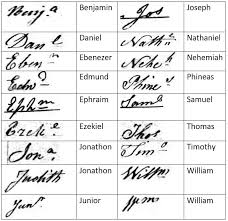 Benj.a Benjamin Jos Joseph
Dan.l Daniel Nath.l Nathaniel
Eben.r Ebenezer Neh.h Nehemiah
Edm.d Edmund Phine.s Phineas
Ephm Ephraim Sam.l Samuel
Ezek.l Ezekiel Thos Thomas
Jon.a Jonathon Tim.o Timothy
Judith Jonathon Willm William
Jun.r Junior Wm William